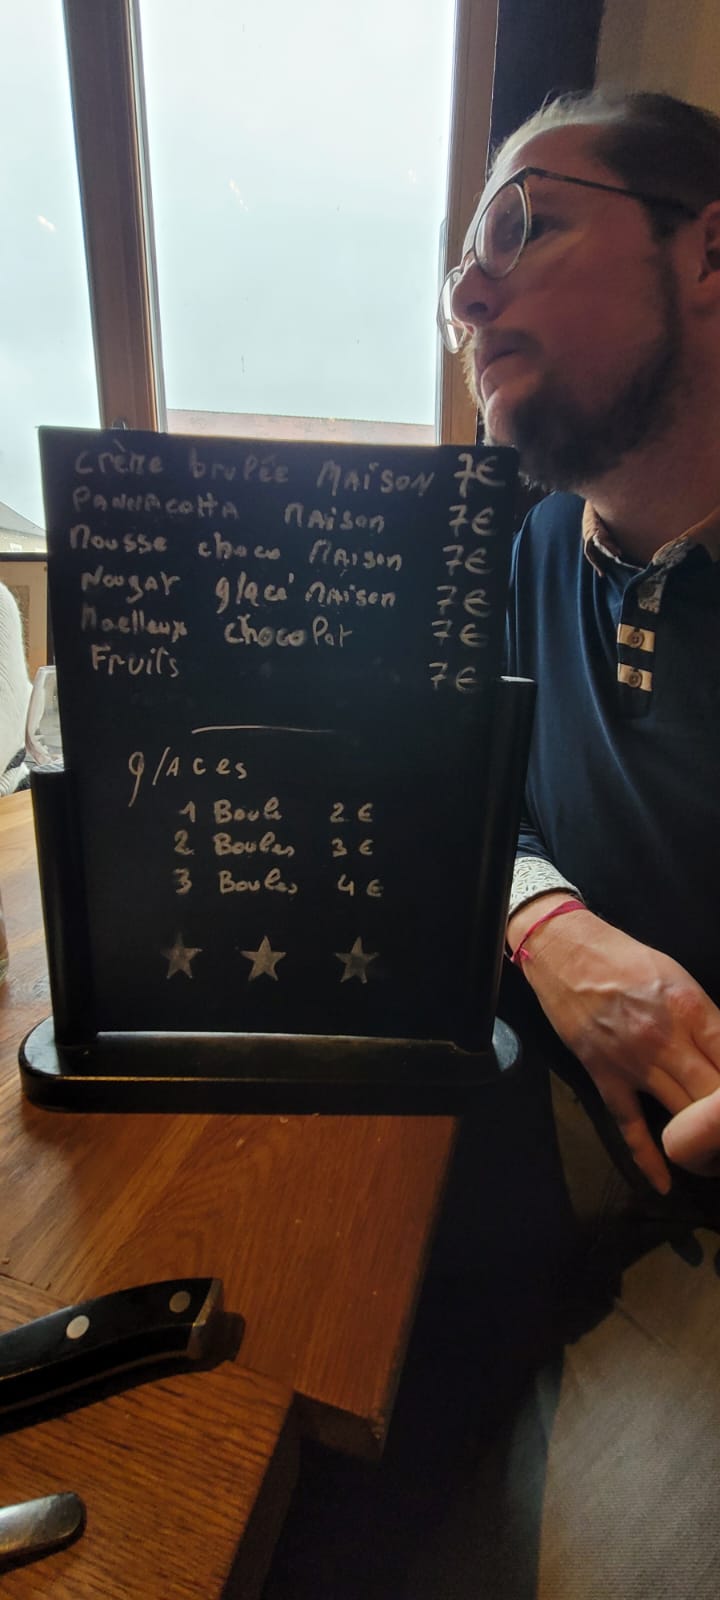 crème brulée MAISON 7€
PANNACOTTA MAISON 7€
Mousse choco MAISON 7€
Nougat glacé MAISON 7€
Moelleux chocolat 7€
Fruits 7€
glaces
1 Boule 2€
2 Boules 3€
3 Boules 4€